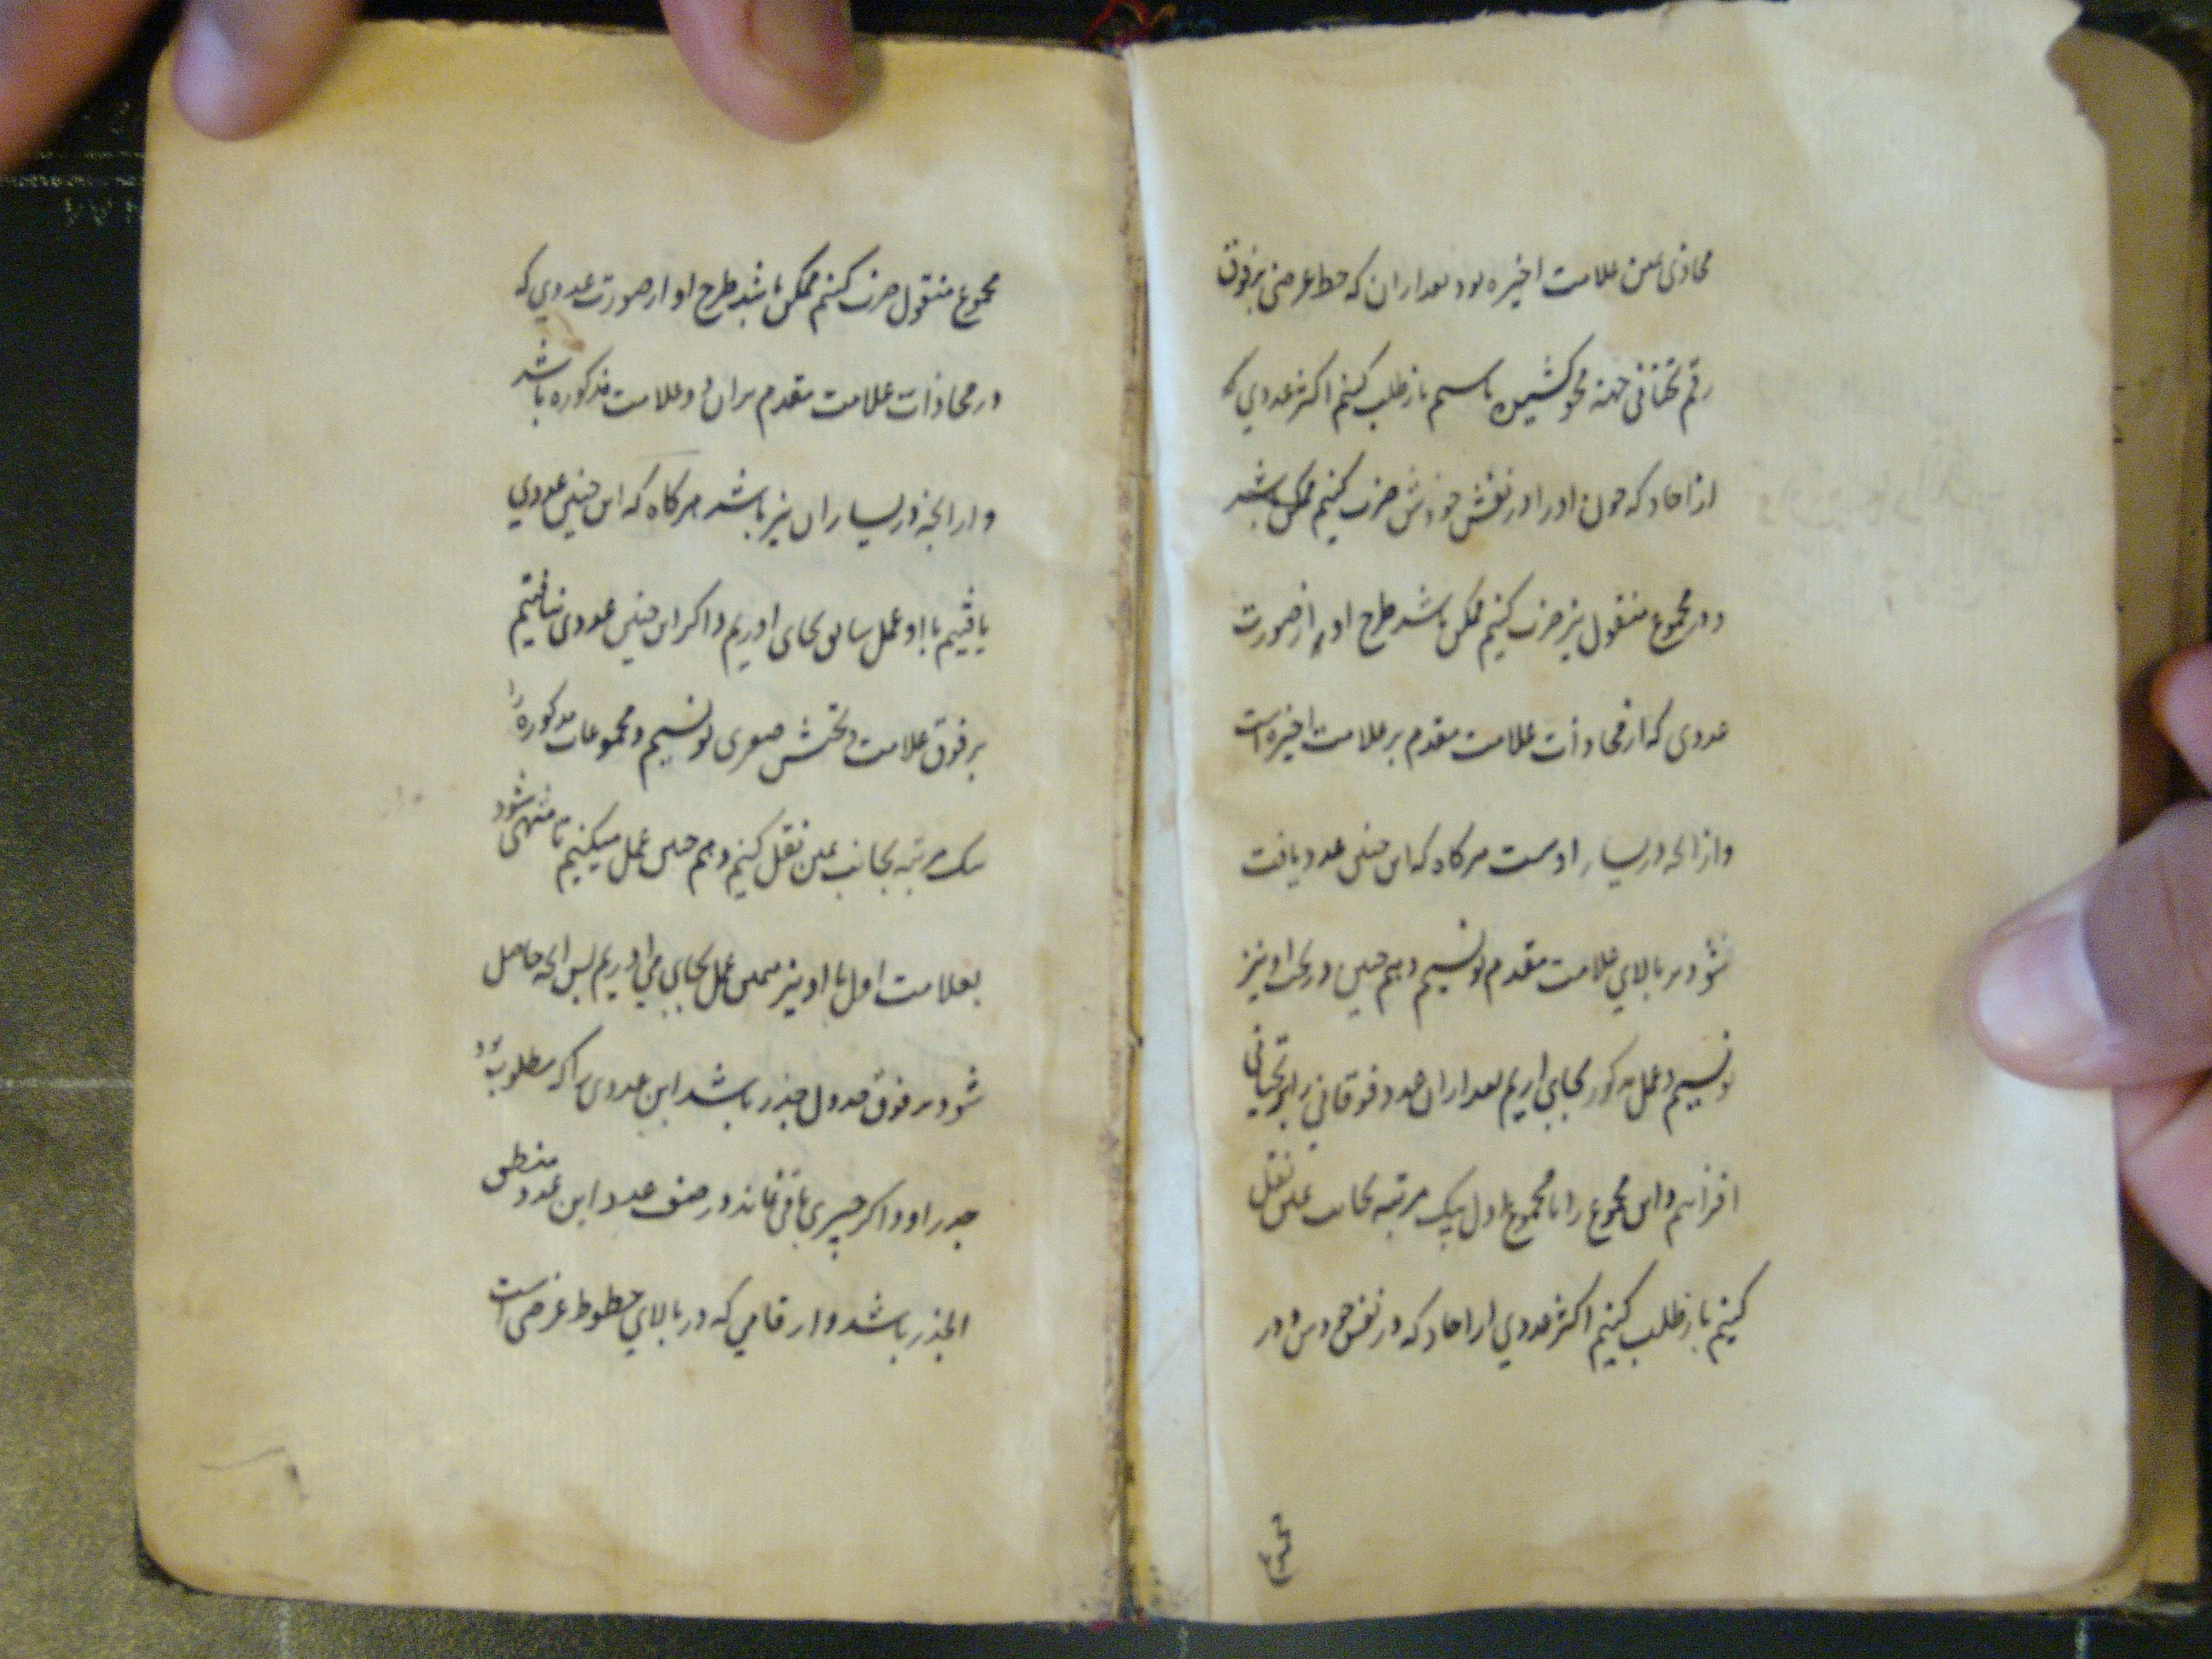 محاذی یمین علامت اخیره بود بعد از ان که خط عرضی بر فوق
رقم تحتانی جهة محو کشیده باسم باز طلب کنیم اکثر عددی که
از احاد که چون او را در نفس خودش ضرب کنیم ممکن باشد
و در مجموع منقول نیز ضرب کنیم ممکن باشد طرح او از صورت
عددی که از محاذات علامت مقدم بر علامت اخیره است
و از انچه در یسار اوست هرگاه که این چنین عدد یافت
شود بر بالای علامت مقدم نویسیم و هم چنین در تحت او نیز
نویسیم و عمل مذکور بجای اریم بعد از ان عدد فوقانی را بر تحتانی
افزاییم و این مجموع را با مجموع اول بیک مرتبه بجانب یمین نقل
کنیم باز طلب کنیم اکثر عددی از احاد که در نفس خودش و در
مجموع
مجموع منقول ضرب کنیم ممکن باشد طرح او از صورت عددی که
در محاذات علامت مقدم بران دو علامت مذکوره باشد
و از انچه در یسار ان نیز باشد هرگاه که این چنین عددی
یافتیم با او عمل سابق بجای اوریم و اگر این چنین عددی نیافتیم
بر فوق علامت و تحتش صفری نویسیم و مجموعات مذکوره را
یک مرتبه بجانب یمین نقل کنیم و هم چنین عمل میکنیم تا منتهی شود
بعلامت اول با او نیز همین عمل بجای می اوریم پس انچه حاصل
شود بر فوق جدول جذر باشد این عددی را که مطلوب بود
جذر او و اگر چیزی باقی نماند در صف عدد این عدد منطق
الجذر باشد و ارقامی که در بالای خطوط عرضی است